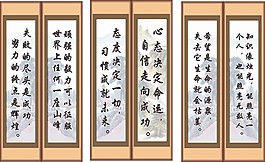 知识像烛光，能照亮一
个人，也能照亮无数人。
希望是生命的源泉，
失去它生命就会枯萎。
心态决定命运，
自信走向成功。
态度决定一切，
习惯成就未来。
顽强的毅力可以征服
世界上任何一座山峰
失败的尽头是成功，
努力的终点是辉煌。